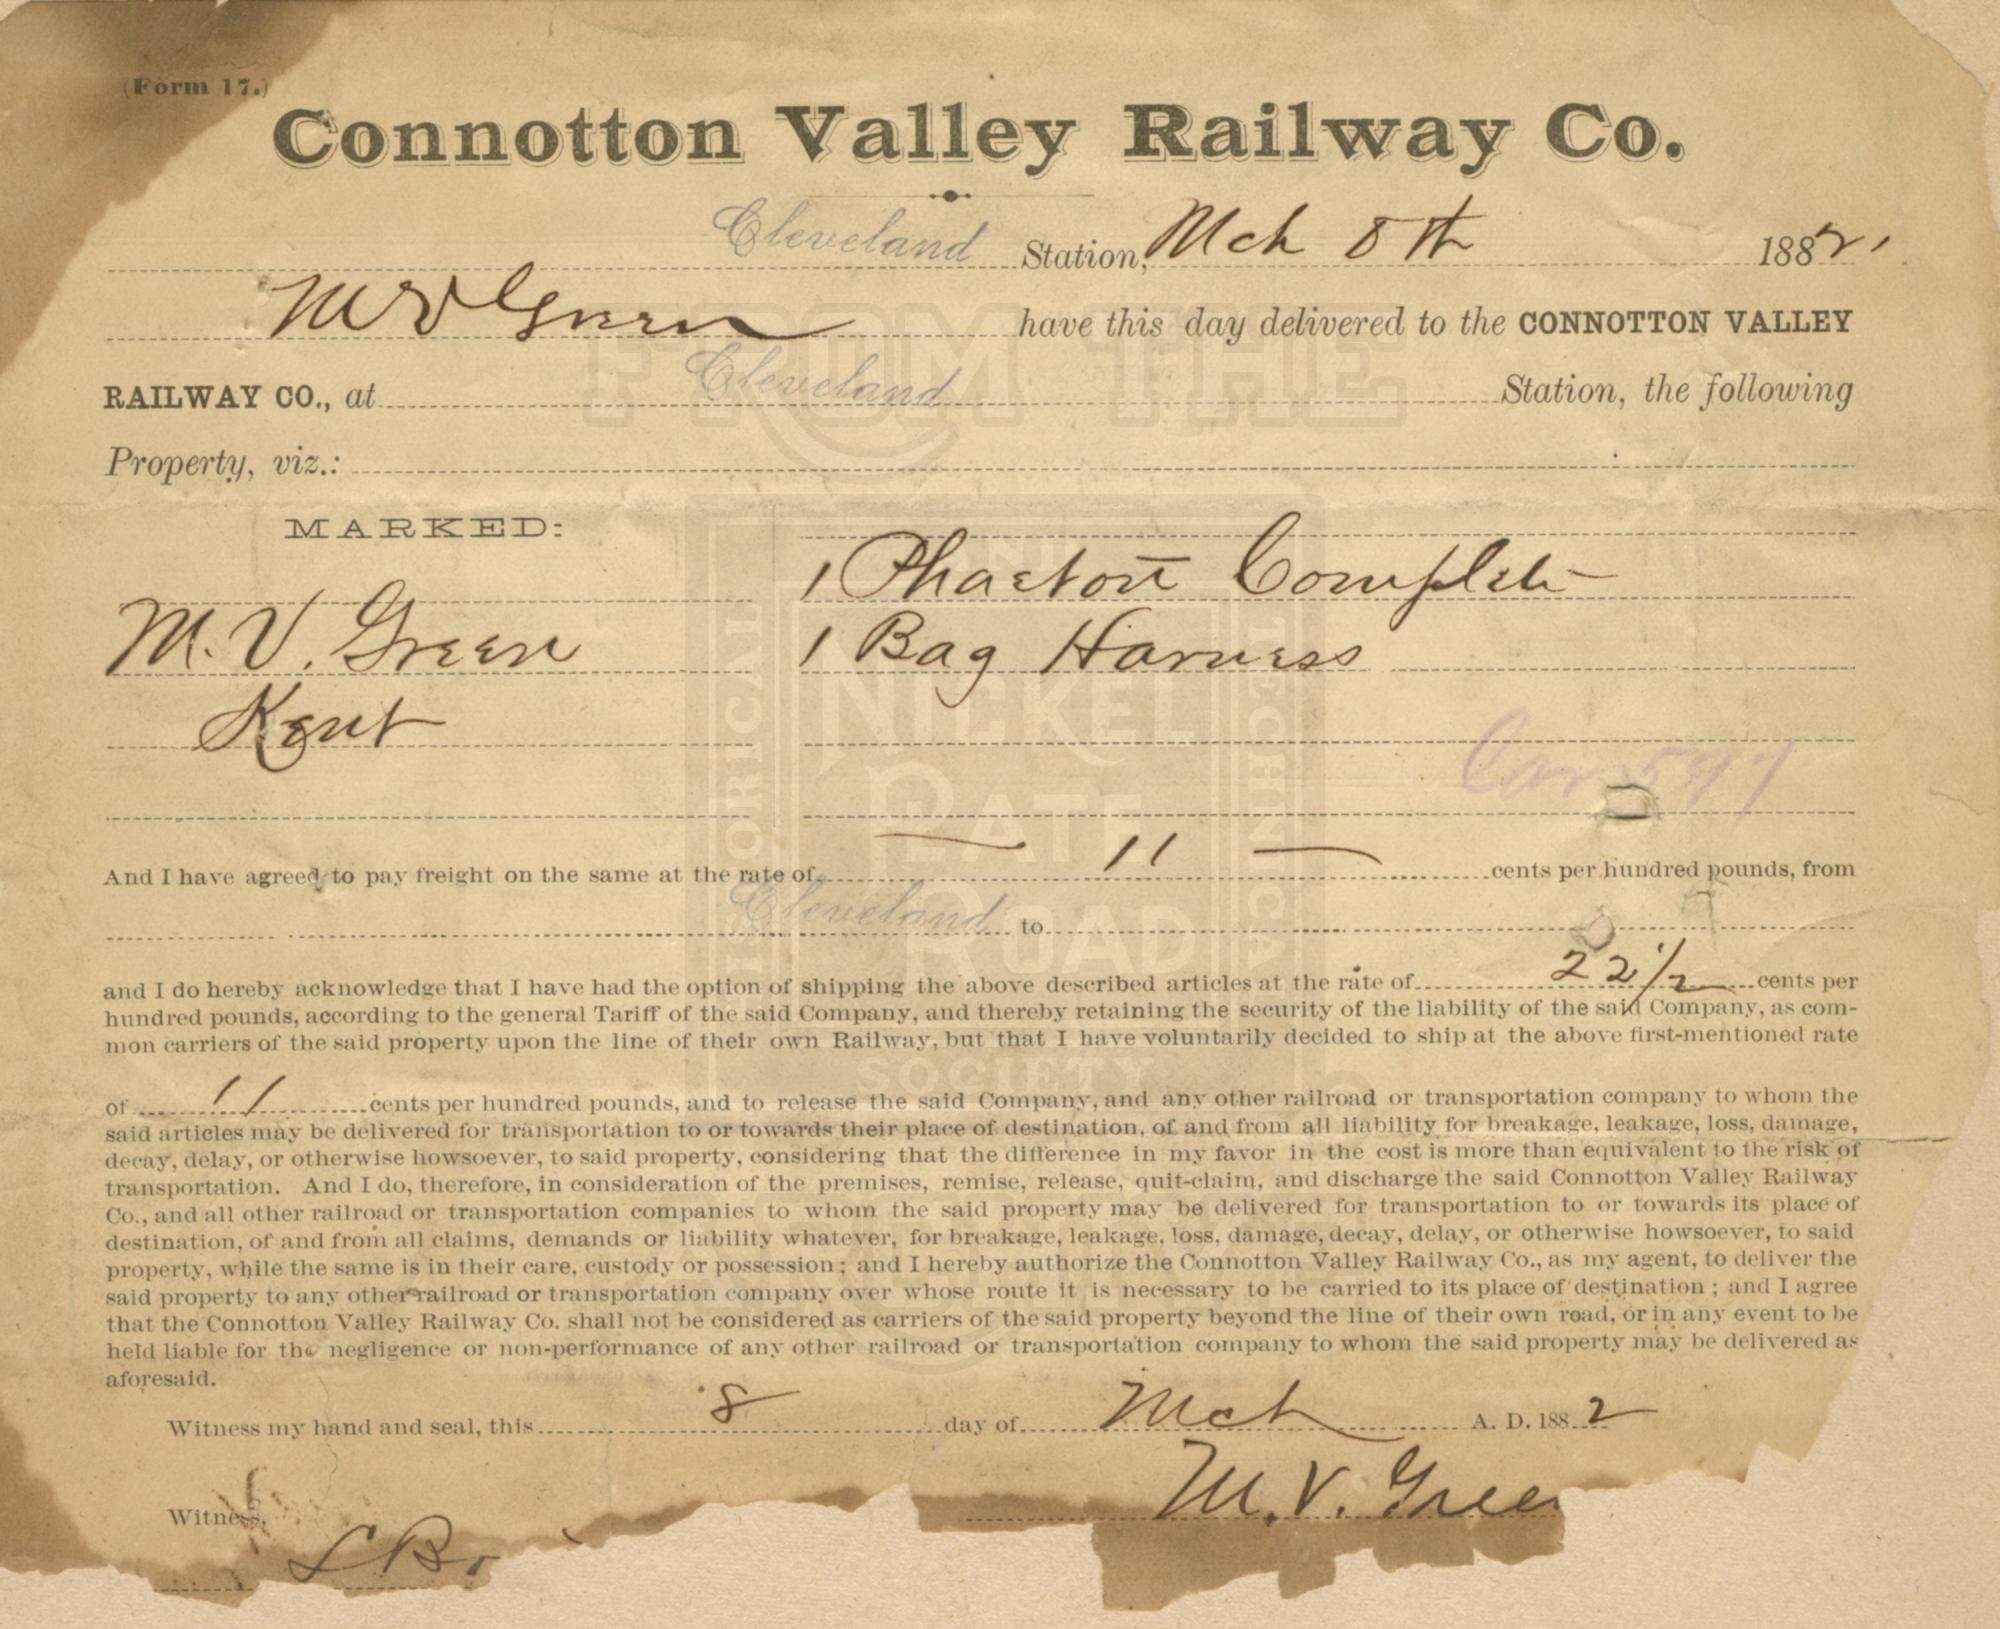 (Form 17.)
Connotton Valley Railway Co.
Cleveland Station, Mch 8th 1882.
M V Green have this day delivered to the CONNOTTON VALLEY
RAILWAY CO., at Cleveland Station, the following
Property, viz.:
MARKED:
1 Phaeton Complete
M. V. Green
1 Bag Harness
Kent
Car 597
And I have agreed to pay freight on the same at the rate of 11 cents per hundred pounds, from
Cleveland to
and I do hereby acknowledge that I have had the option of shipping the above described articles at the rate of 22 1/2 cents per
hundred pounds, according to the general Tariff of the said Company, and thereby retaining the security of the liability of the said Company, as com-
mon carriers of the said property upon the line of their own Railway, but that I have voluntarily decided to ship at the above first-mentioned rate
of 11 cents per hundred pounds, and to release the said Company, and any other railroad or transportation company to whom the
said articles may be delivered for transportation to or towards their place of destination, of and from all liability for breakage, leakage, loss, damage,
decay, delay, or otherwise howsoever, to said property, considering that the difference in my favor in the cost is more than equivalent to the risk of
transportation. And I do, therefore, in consideration of the premises, remise, release, quit-claim, and discharge the said Connotton Valley Railway
Co., and all other railroad or transportation companies to whom the said property may be delivered for transportation to or towards its place of
destination, of and from all claims, demands or liability whatever, for breakage, leakage, loss, damage, decay, delay, or otherwise howsoever, to said
property, while the same is in their care, custody or possession; and I hereby authorize the Connotton Valley Railway Co., as my agent, to deliver the
said property to any other railroad or transportation company over whose route it is necessary to be carried to its place of destination; and I agree
that the Connotton Valley Railway Co. shall not be considered as carriers of the said property beyond the line of their own road, or in any event to be
held liable for the negligence or non-performance of any other railroad or transportation company to whom the said property may be delivered as
aforesaid.
Witness my hand and seal, this 8 day of Mch A. D. 1882
M. V. Green
Witness,
FROM THE
HISTORICAL
TECHNICAL
NICKEL
PLATE
ROAD
SOCIETY